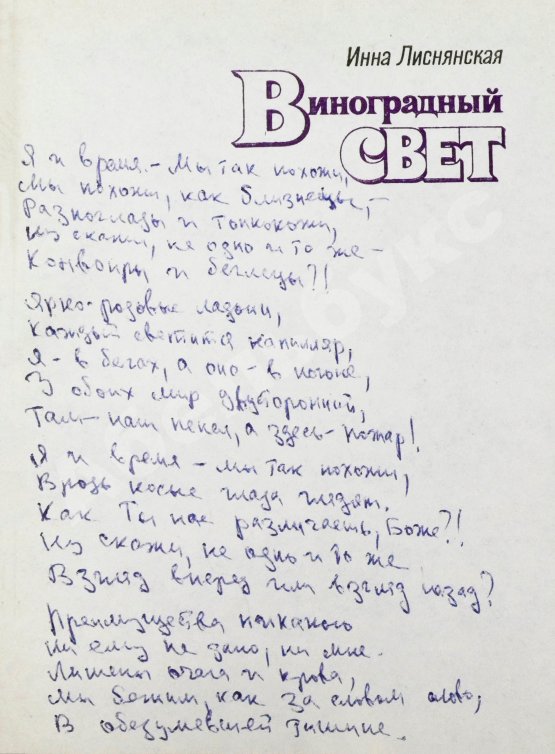 Инна Лиснянская
Виноградный
СВЕТ
Я и время – мы так похожи,
Мы похожи, как близнецы, –
Разноглазы и тонкокожи,
Ну скажи, не одно и то же –
Конвоиры и беглецы?!
Ярко-розовые ладони,
Каждый светится капилляр,
Я – в бегах, а оно – в погоне,
У обоих мир двусторонний,
Там – наш пепел, а здесь – пожар!
Я и время – мы так похожи,
Врозь косые глаза глядят.
Как Ты нас различаешь, Боже?!
Ну скажи, не одно и то же
Взгляд вперед или взгляд назад?
Преимущества никакого
Ни ему не дано, ни мне.
Лишены очага и крова,
Мы бежим, как за словом слово,
В обезумевшей тишине.